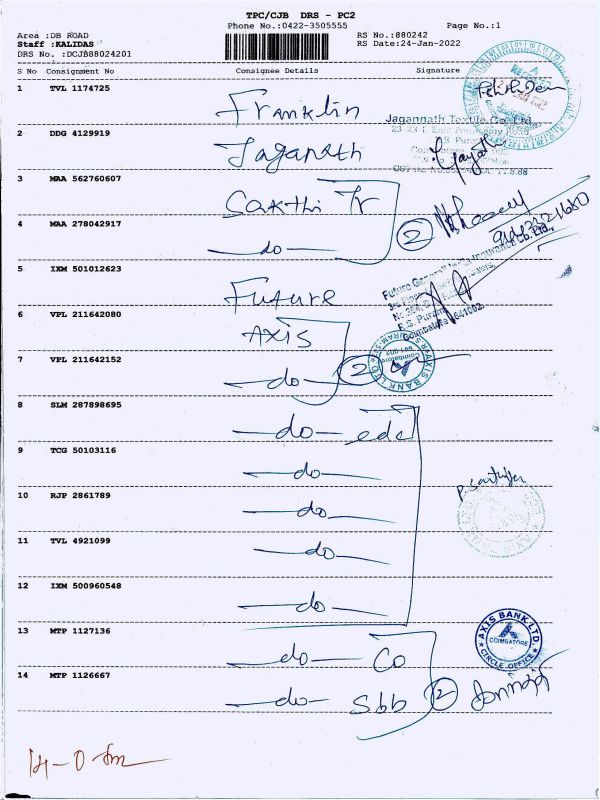 TPC/CJB DRS - PC2
Phone No.:0422-3505555 Page No.:1
Area :DB ROAD RS No.:880242
Staff :KALIDAS RS Date:24-Jan-2022
DRS No. :DCJB88024201
S No Consignment No Consignee Details Signature
1 TVL 1174725 Franklin
Jagannath Textile Co Ltd
2 DDG 4129919 Jaganath
3 MAA 562760607 Sakthi Tr
4 MAA 278042917 -do- 2
5 IXM 501012623 Future
Future Generali India Insurance Co. Ltd.,
Coimbatore 641002.
6 VPL 211642080 AXIS
7 VPL 211642152 -do- 2
AXIS BANK LTD
Coimbatore
641 002
8 SLM 287898695 -do- edc
9 TCG 50103116 -do-
10 RJP 2861789 -do-
11 TVL 4921099 -do-
12 IXM 500960548 -do-
13 MTP 1127136 -do- Co
AXIS BANK LTD.
COIMBATORE
CIRCLE OFFICE
14 MTP 1126667 -do- Sbb 2